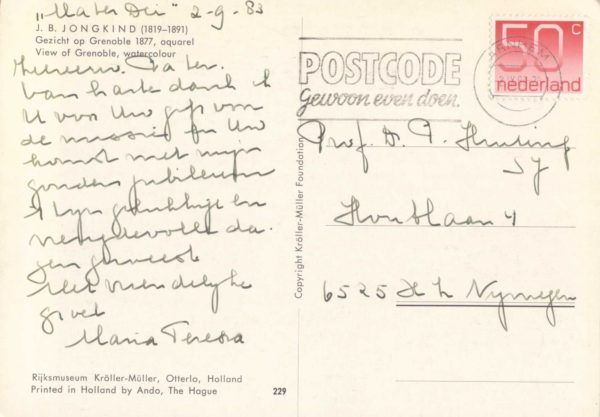 "Mater Dei" 2-9-83
J. B. JONGKIND (1819–1891)
Gezicht op Grenoble 1877, aquarel
View of Grenoble, watercolour
Eerwaarde Pater.
Van harte dank ik
U voor Uw gift voor
de missie en Uw
komst met mijn
gouden jubileum
't Zyn gelukkige en
vreugdevolle da-
gen geweest
Met vriendelyke
groet
Maria Teresa
Rijksmuseum Kröller-Müller, Otterlo, Holland
Printed in Holland by Ando, The Hague
229
Copyright Kröller-Müller Foundation
POSTCODE
Gewoon even doen.
50 c
nederland
Prof. Dr. P.
SJ
Houtlaan 4
6525 Nymegen